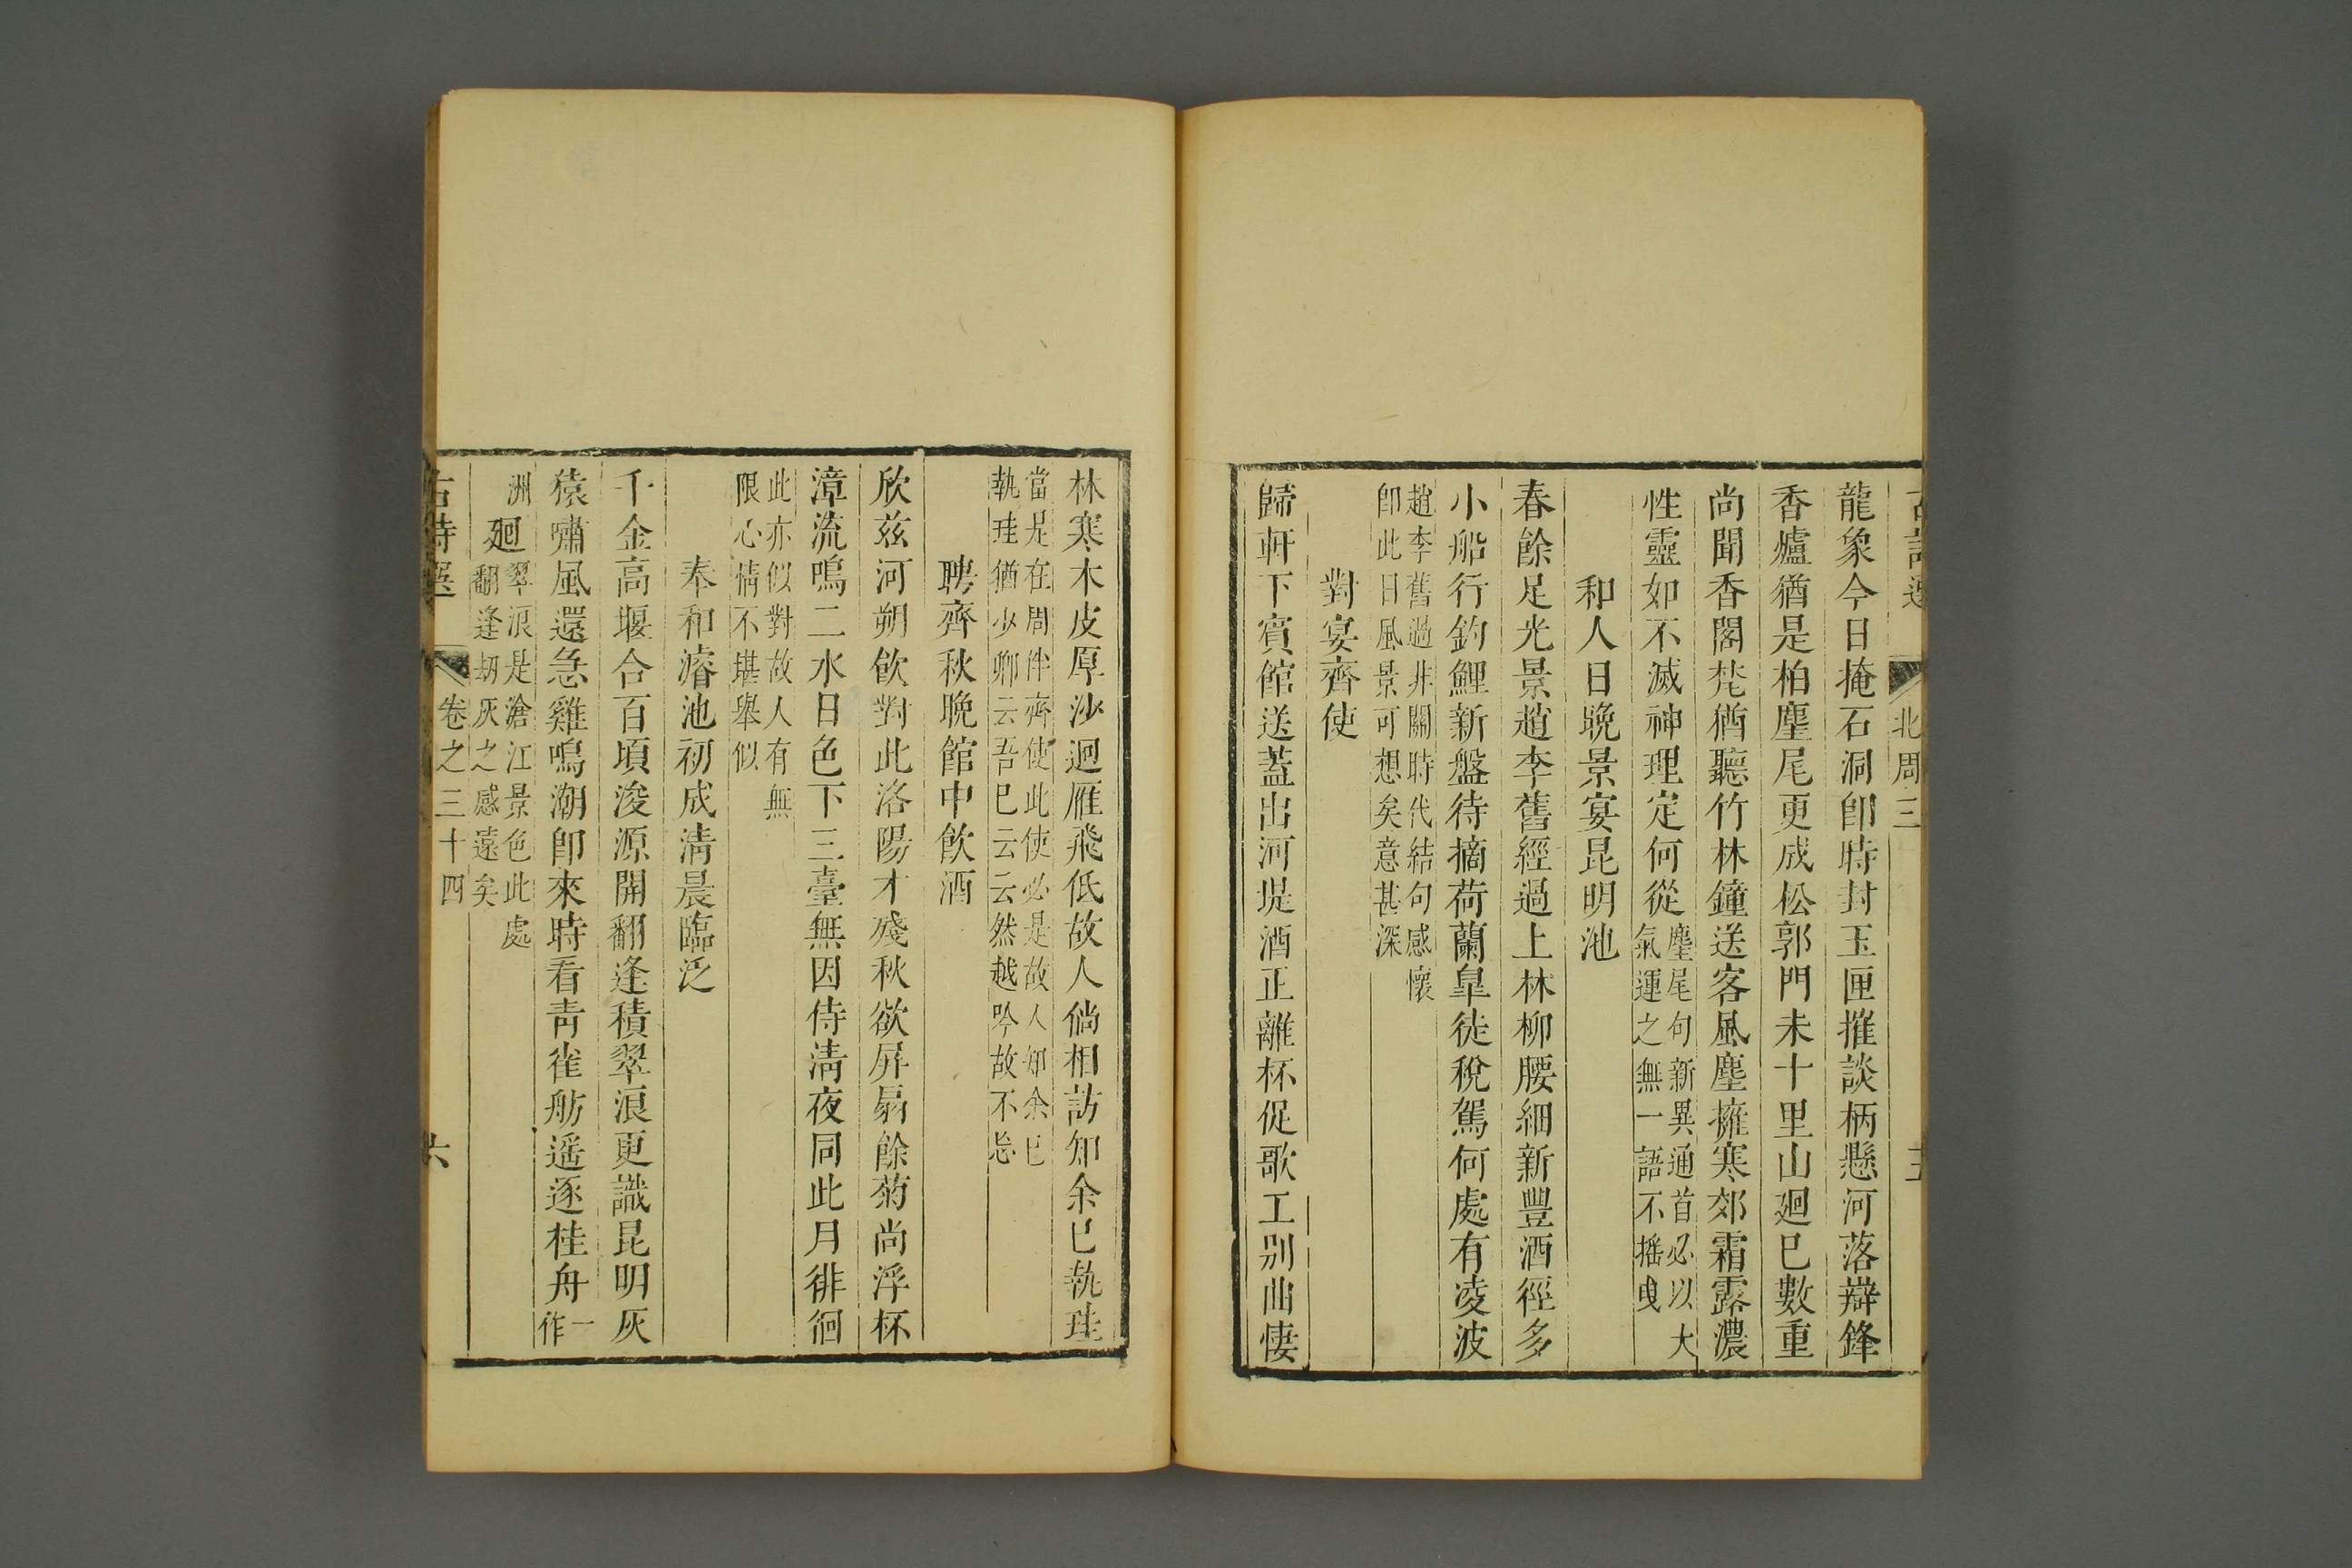 古詩選 北周三 五
龍象今日掩石洞卽時封玉匣摧談柄懸河落辯鋒
香爐猶是柏麈尾更成松郭門未十里山廻已數重
尚聞香閣梵猶聽竹林鐘送客風塵擁寒郊霜露濃
性靈如不滅神理定何從麈尾句新異通首必以大
氣運之無一語不搖曳
和人日晚景宴昆明池
春餘足光景趙李舊經過上林柳腰細新豐酒徑多
小船行釣鯉新盤待摘荷蘭皐徒稅駕何處有凌波
趙李舊過非關時代結句感懷
卽此日風景可想矣意甚深
對宴齊使
歸軒下賓館送蓋出河堤酒正離杯促歌工别曲悽
林寒木皮厚沙迥雁飛低故人倘相訪知余已執珪
當是在周伴齊使此使必是故人知余已
執珪猶少卿云吾已云云然越吟故不忘
聘齊秋晚館中飲酒
欣兹河朔飲對此洛陽才殘秋欲屏扇餘菊尚浮杯
漳流鳴二水日色下三臺無因侍淸夜同此月徘徊
此亦似對故人有無
限心情不堪舉似
奉和濬池初成淸晨臨泛
千金高堰合百頃浚源開翻逢積翠浪更識昆明灰
猿嘯風還急雞鳴潮卽來時看靑雀舫遥逐桂舟一
作
洲廻翠浪是滄江景色此處
翻逢刼灰之感遠矣
古詩選 卷之三十四 六